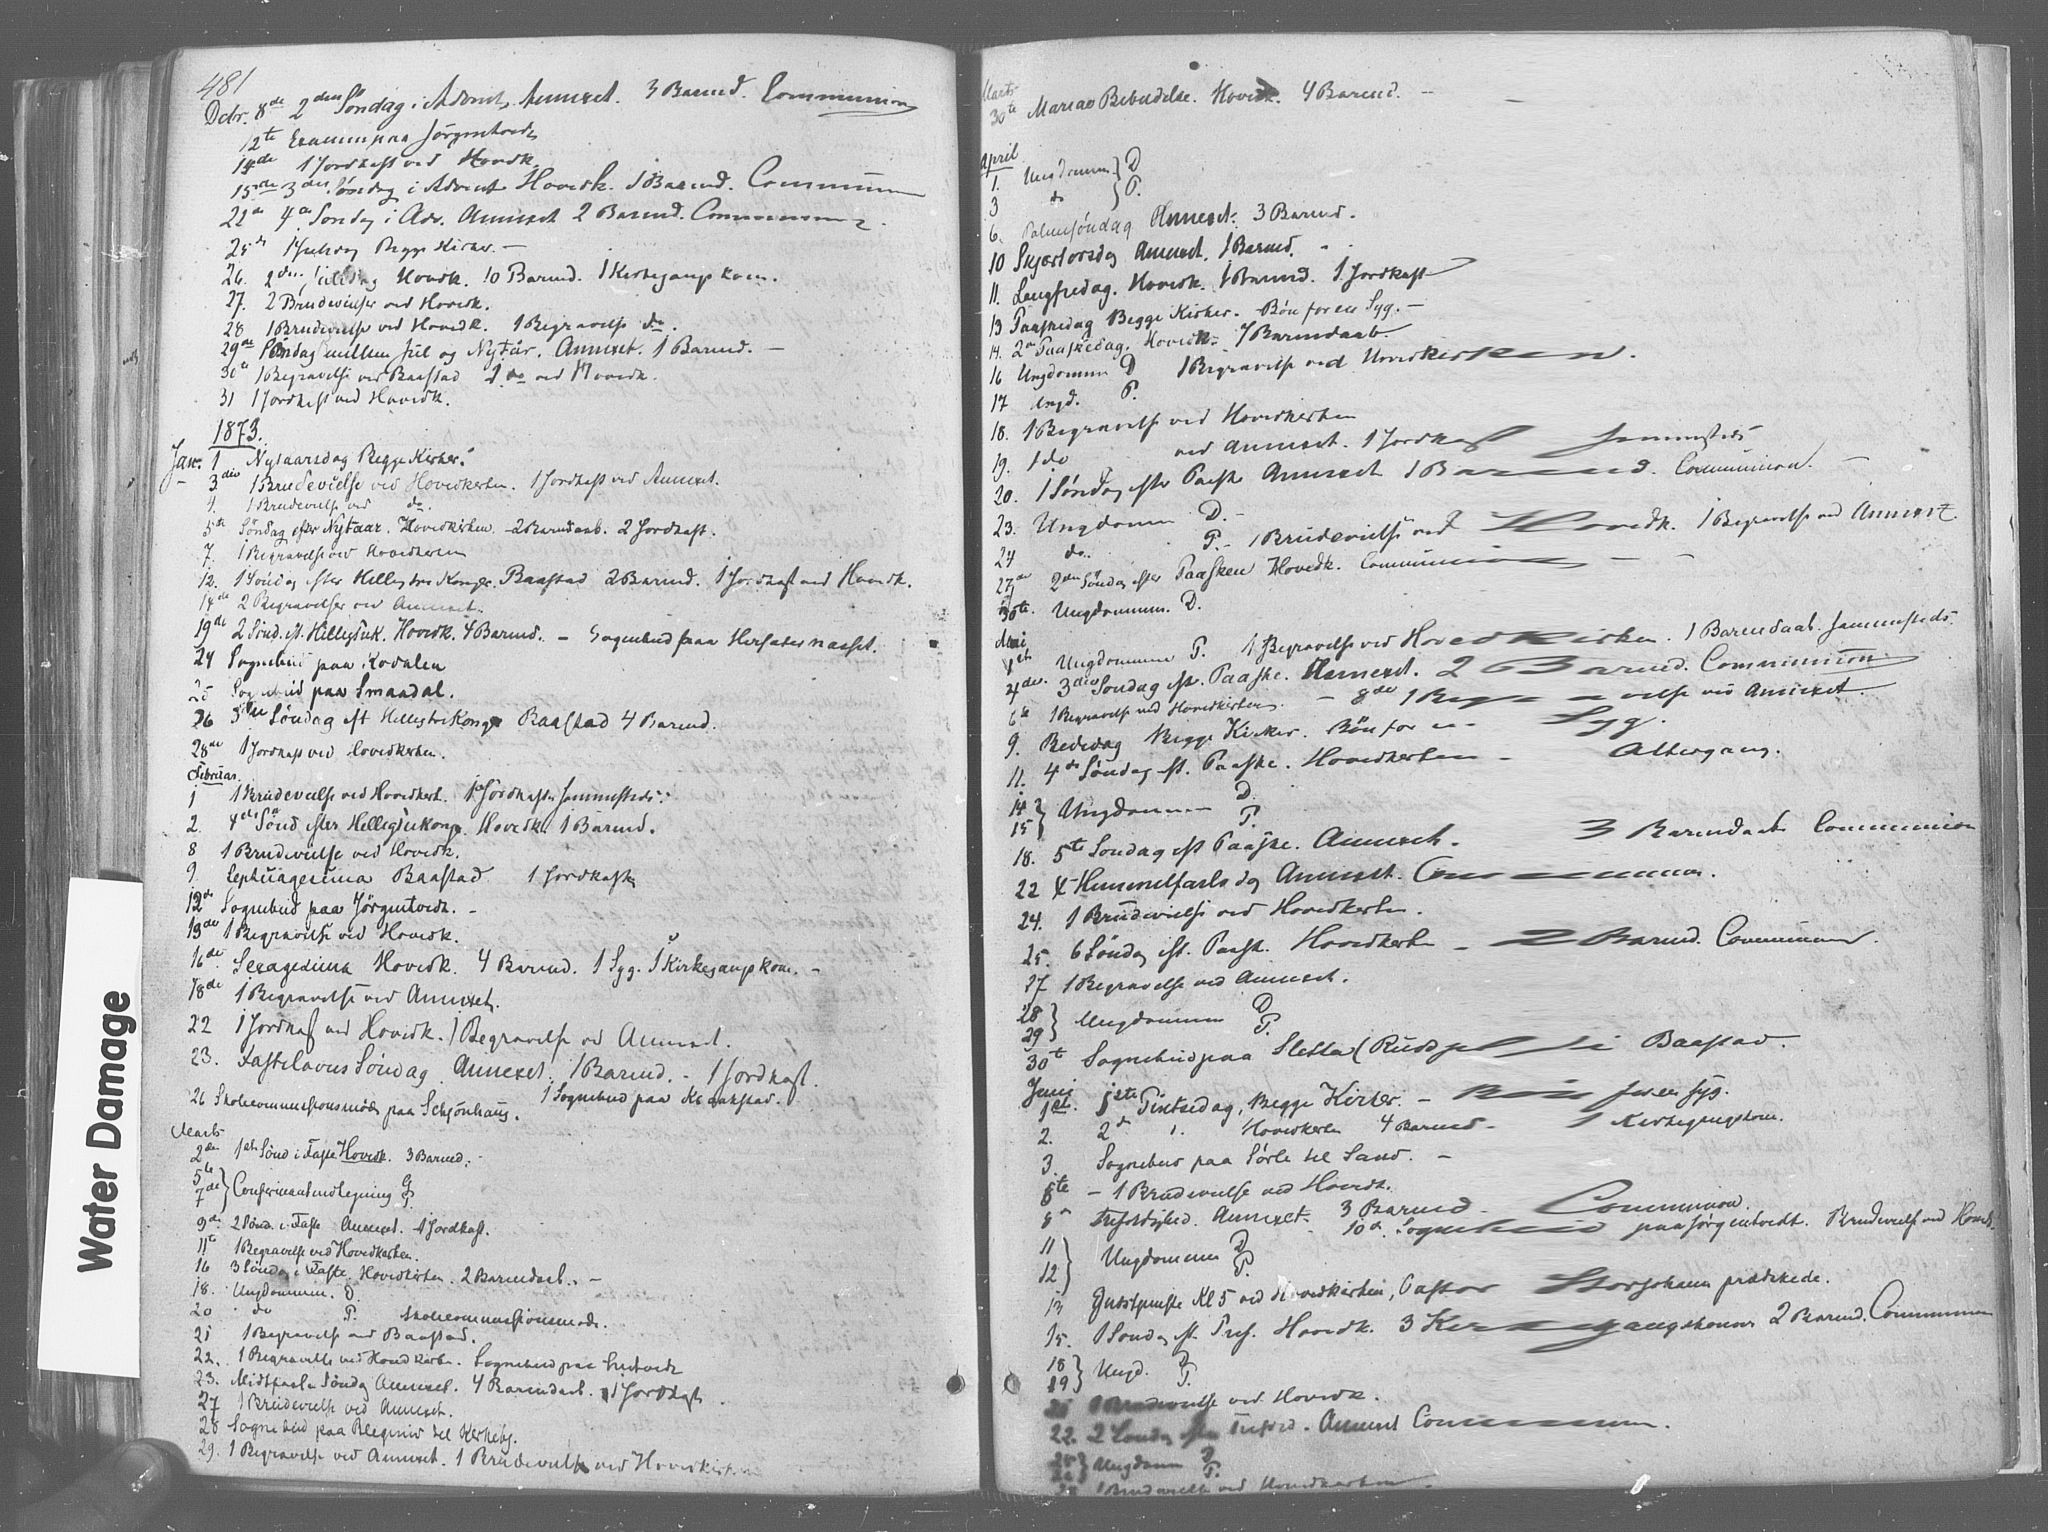 481
Decbr. 8de 2den Søndag i Advent. Annexet. 3 Barned. Communion
12te Examen paa Jørgentvedt
14de 1 Jordkast ved Hovedk.
15de 3die Søndag i Advent Hovedk. 1 Barned. Communion
22de 4de Søndag i Adv. Annexet 2 Barned. Communion
25de 1 Juledag Begge Kirker. —
26. 2den Juledag Hovedk. 10 Barned. 1 Kirkegangskone.
27. 2 Brudevielser ved Hovedk.
28 1 Brudevielse ved Hovedk. 1 Begravelse do.
29de Søndag mellem Jul og Nytår. Annexet. 1 Barned. —
30te 1 Begravelse ved Baastad 1 do ved Hovedk.
31 1 Jordkast ved Hovedk.
1873.
Jan. 1 Nytaarsdag Begge Kirker.
3die 1 Brudevielse ved Hovedkirken. 1 Jordkast ved Annexet.
4. 1 Brudevielse ved do.
5te Søndag efter Nytaar. Hovedkirken — 2 Barnedaab. 2 Jordkast.
7. 1 Begravelse ved Hovedkirken
12. 1 Søndag efter Hellig tre Konger. Baastad 2 Barned. 1 Jordkast ved Hovedk.
14de 2 Begravelser ved Annexet.
19de 2 Sønd. ef. Helligtrek. Hovedk. 4 Barned. — Sognebud paa
24 Sognebud paa Kodalen
25 Sognebud paa Smaadal.
26 3die Søndag eft Helligtrekonge Baastad 4 Barned.
28de 1 Jordkast ved Hovedkirken.
Februar.
1 1 Brudevielse ved Hovedkirk. 1 Jordkast Sammesteds.
2. 4de Sønd efter Helligtrekong. Hovedk. 1 Barned.
8 1 Brudevielse ved Hovedk.
9. Septuagesima Baastad 1 Jordkast
12de Sognebud paa Jørgentvedt. —
13de 1 Begravelse ved Hovedk.
16de Sexagesima Hovedk. 4 Barned. 1 Syg. 1 Kirkegangskone. —
18de 1 Begravelse ved Annexet.
22 1 Jordkast ved Hovedk. 1 Begravelse ved Annexet.
23. Fastelavns Søndag. Annexet. 1 Barned. — 1 Jordkast.
26 Skolecommissionsmøde paa Schjønhaug. 1 Sognebud paa Kraakstad.
Marts
2den 1ste Sønd i Faste Hovedk. 3 Barned.
5te
7de } Confirmantindtegning
9de 2 Sønd. i Faste Annexet. 1 Jordkast.
11te 1 Begravelse ved Hovedkirken.
16 3 Søndag i Faste. Hovedkirken. 2 Barnedaab. —
18. Ungdommen. D.
20 do P. Skolecommissionsmøde.
21 1 Begravelse ved Baastad.
22. 1 Begravelse ved Hovedkirke. Sognebud paa
23. Midfaste Søndag Annexet. 4 Barnedaab. 1 Jordkast
27 1 Brudevielse ved Annexet.
28 Sognebud paa
29. 1 Begravelse ved Annexet. 1 Brudevielse ved Hovedkirken
Marts
30te Mariae Bebudelse. Hovedk. 4 Barned. —
April
1. Ungdommen } D
3 do } P.
6. Palmesøndag Annexet. 3 Barned.
10 Skjærtorsdag Annexet. 1 Barned.
11. Langfredag. Hovedk. 1 Barned. 1 Jordkast
13 Paaskedag Begge Kirker. Bøn for en Syg. —
14. 2den Paaskedag. Hovedk. 7 Barnedaab.
16 Ungdommen D 1 Begravelse ved Hovedkirken.
17 Ungd. P.
18. 1 Begravelse ved Hovedkirken
19. 1 do ved Annexet. 1 Jordkast Sammesteds
20. 1 Søndag efter Paaske Annexet 1 Barned. Communion. —
23. Ungdommen D. —
24 do. P. — 1 Brudevielse ved Hovedk. 1 Begravelse ved Annexet.
27de 2den Søndag efter Paasken Hovedk. Communion —
30te. Ungdommen. D.
Mai
1ste Ungdommen P. 1 Begravelse ved Hovedkirken. 1 Barnedaab. Sammesteds.
4de 3die Søndag ef. Paaske. Annexet. 2 Barned. Communion.
6te 1 Begravelse ved Hovedkirken. — 8de 1 Begravelse ved Annexet.
9. Bededag Begge Kirker. Bøn for en Syg.
11. 4de Søndag ef. Paaske. Hovedkirken — Altergang.
14
15 } Ungdommen D. P.
18. 5te Søndag eft Paaske. Annexet. 3 Barnedaab Communion
22 Himmelfartsdag Annexet. Communion.
24. 1 Brudevielse ved Hovedkirken.
25. 6 Søndag eft. Paask. Hovedkirken — 2 Barned. Communion.
27 1 Begravelse ved Annexet.
28
29 } Ungdommen D P.
30te Sognebud paa Sletta ( i Baastad.
Juni
1ste. 1ste Pintsedag, Begge Kirker. — Bøn for en Syg.
2. 2d Hovedkirken 4 Barned. 1 Kirkegangskone.
3. Sognebud paa Sørli til Sand. —
6te — 1 Brudevielse ved Hovedk.
8de Trefoldighed. Annexet. 3 Barned. Communion.
10de Sognebud paa Jørgentvedt. Brudevielse ved Hovedk.
11
12 } Ungdommen D P.
13 Gudstjeneste Kl 5 ved Hovedkirken, Pastor Storjohann prædikede.
15. 1 Søndag ef. Tref. Hovedk. 3 Kirkegangskoner 2 Barned. Communion
18
19 } Ungd. D P.
1 Brudevielse ved Hovedk.
22. 2 Søndag efter Trefold. Annexet Communion.
Ungdom D P.
1 Brudevielse ved Hovedkirken
Water Damage